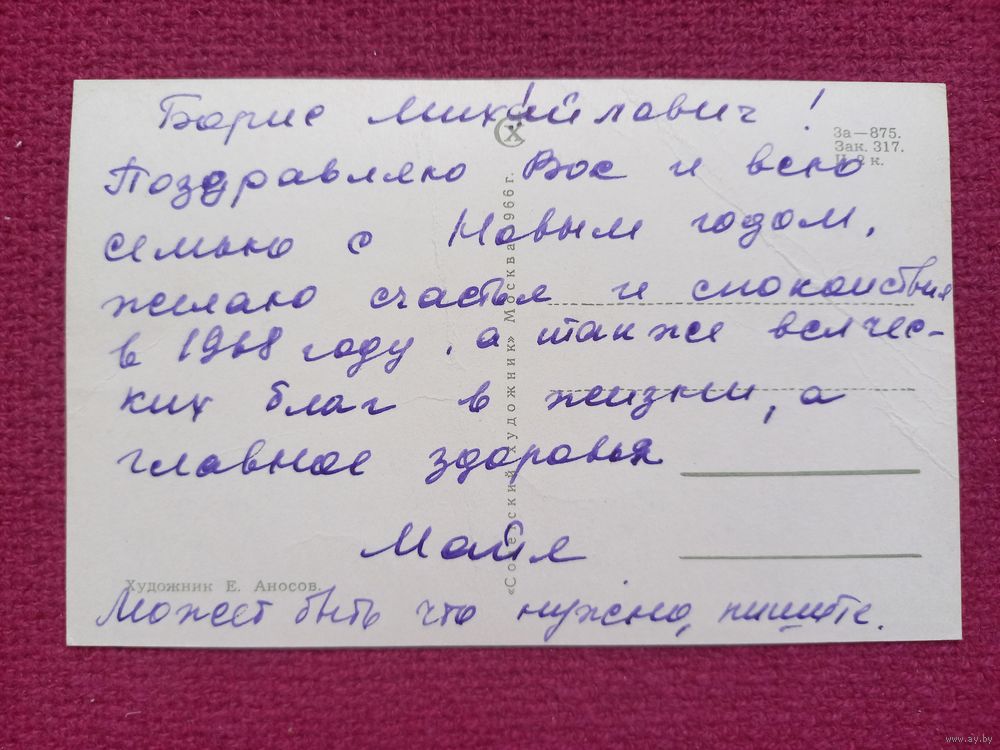 Борис Михайлович!
За—875.
Зак. 317.
Ц. 2 к.
Поздравляю Вас и всю
семью с Новым годом,
желаю счастья и спокойствия
в 1968 году, а также всячес-
ких благ в жизни, а
главное здоровья
Майя
Художник Е. Аносов.
Может быть что нужно, пишите.
«Советский художник» Москва 1966 г.
www.ay.by